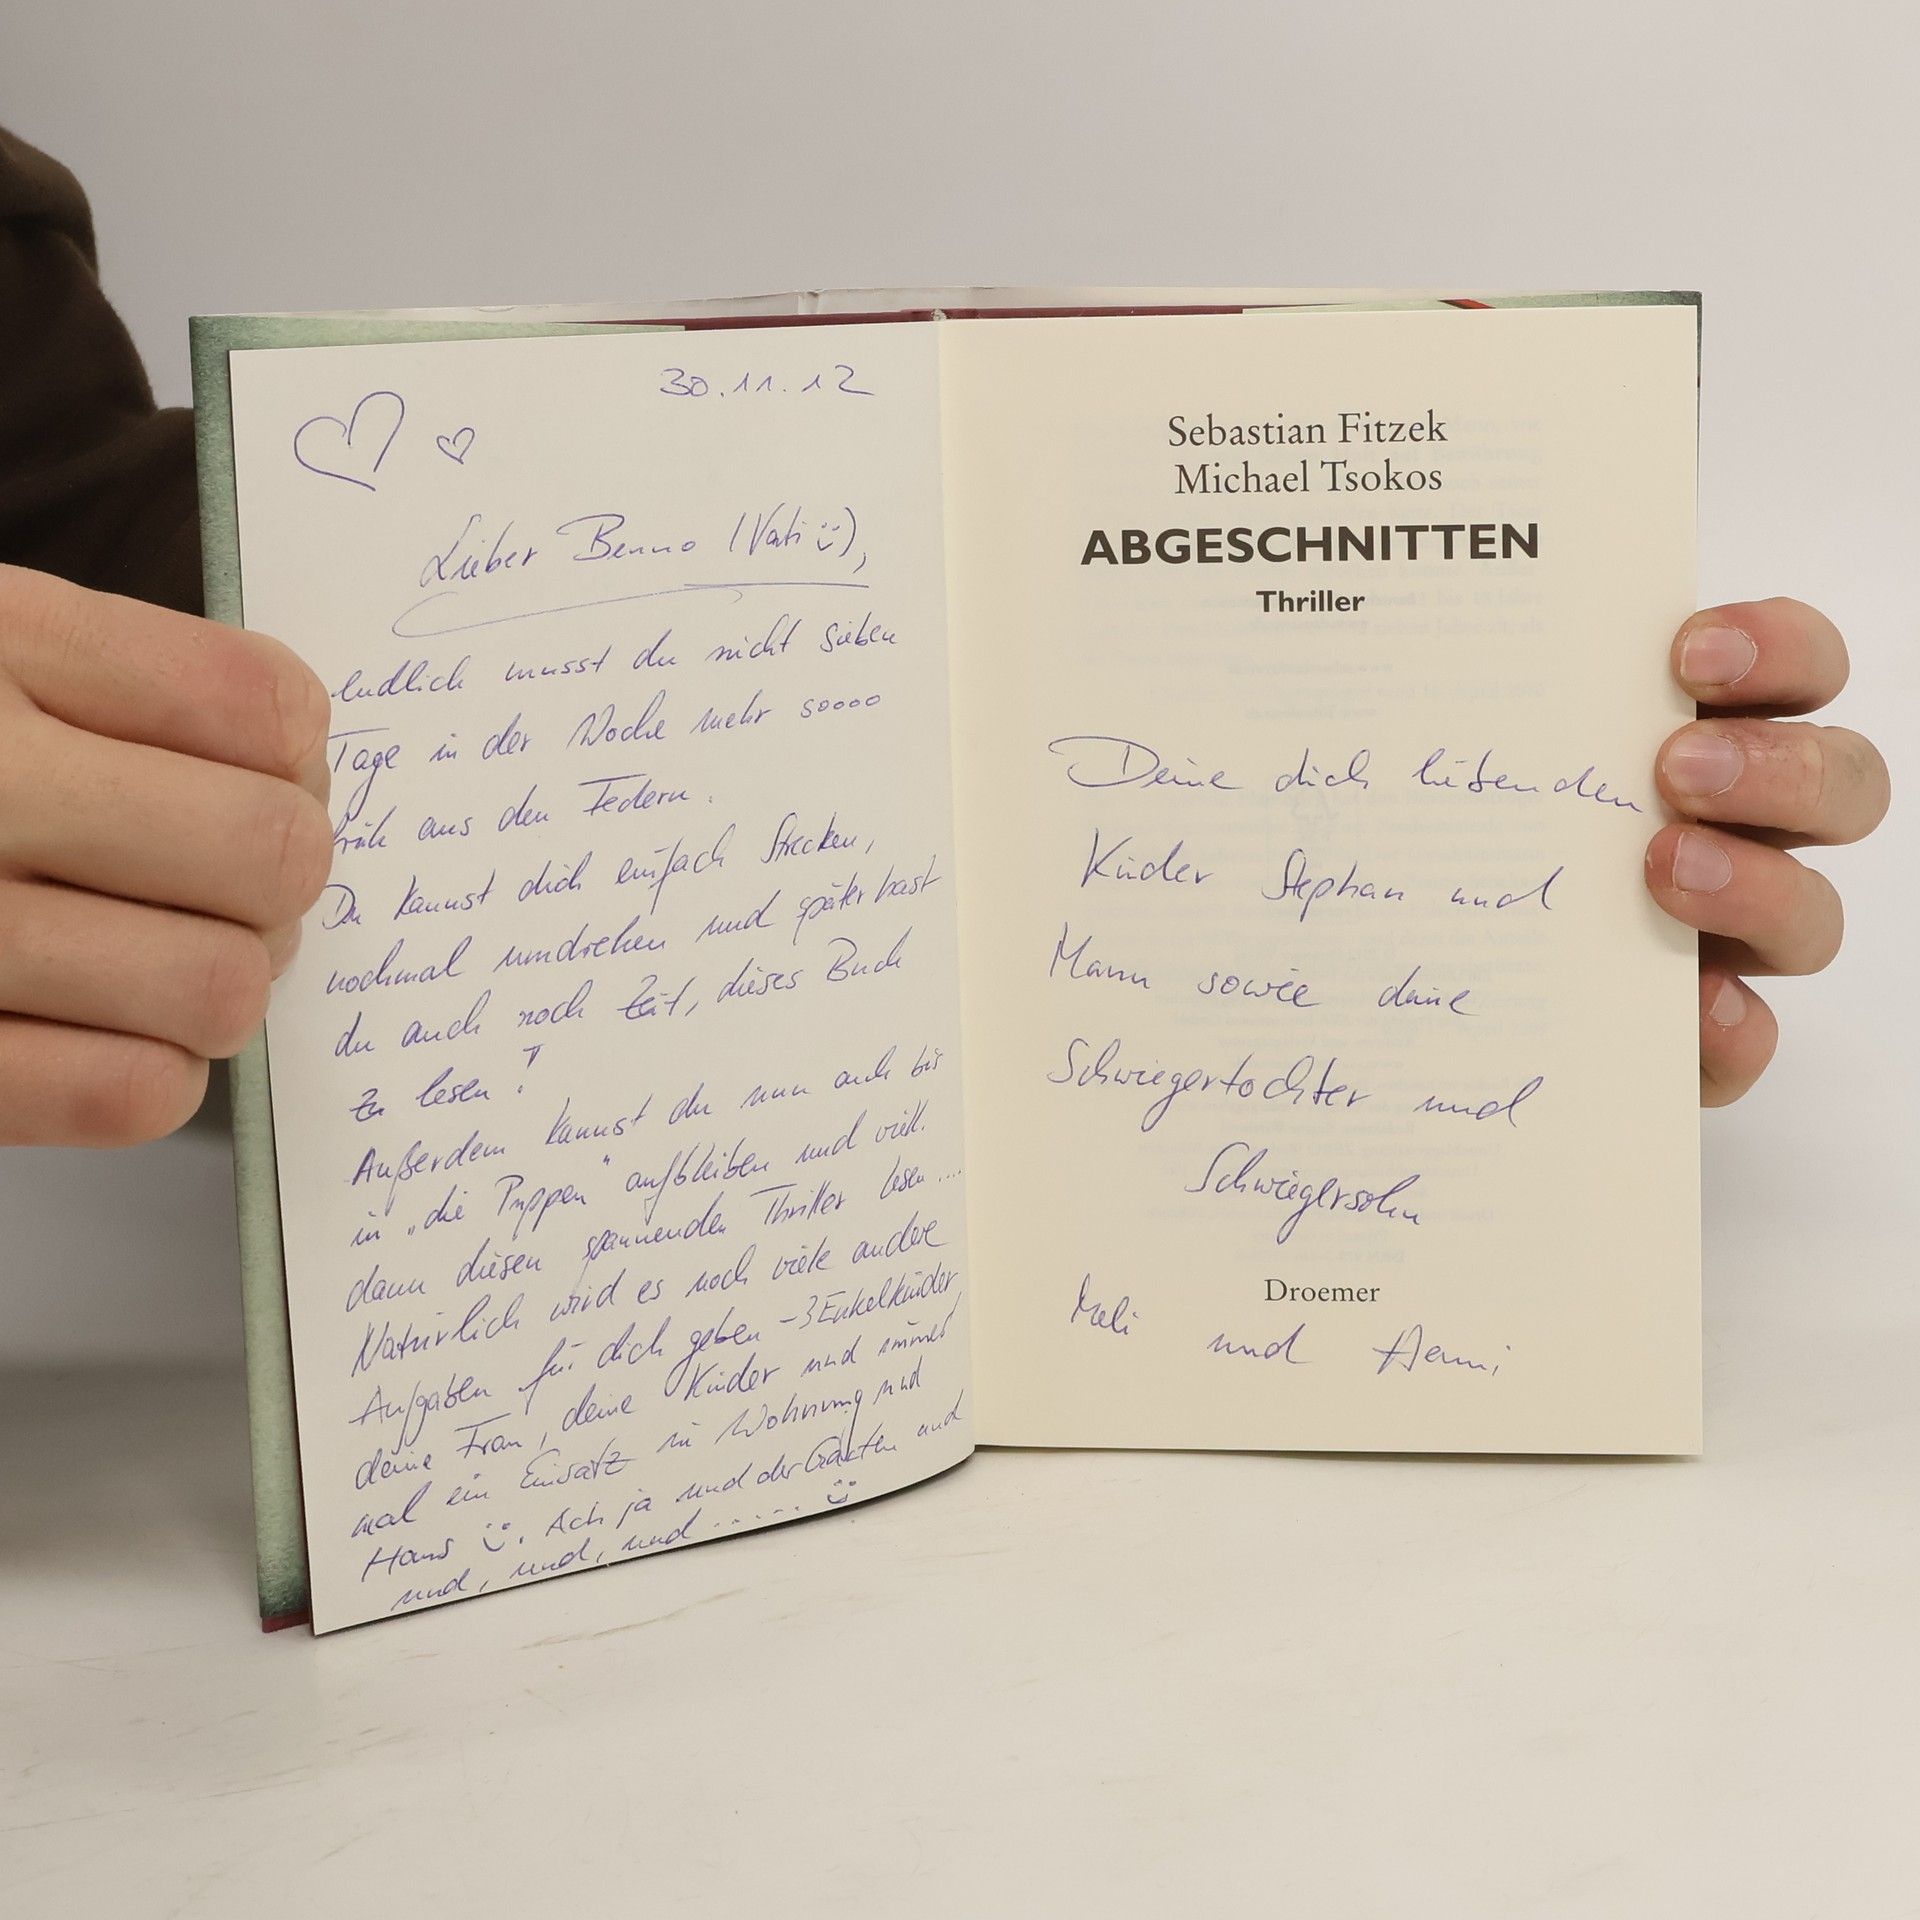 30.11.12
Lieber Benno (Vati ü),
endlich musst du nicht sieben
Tage in der Woche mehr soooo
früh aus den Federn.
Du kannst dich einfach strecken,
nochmal umdrehen und später hast
du auch noch Zeit, dieses Buch
zu lesen!
Außerdem kannst du nun auch bis
in „die Puppen" aufbleiben und viell.
dann diesen spannenden Thriller lesen....
Natürlich wird es noch viele andere
Aufgaben für dich geben - 3 Enkelkinder,
deine Frau, deine Kinder und immer
mal ein Einsatz in Wohnung und
Haus ü. Ach ja und der Garten und
und, und, und ...... ü
Sebastian Fitzek
Michael Tsokos
ABGESCHNITTEN
Thriller
Deine dich liebenden
Kinder Stephan und
Mann sowie deine
Schwiegertochter und
Schwiegersohn
Droemer
Meli
und